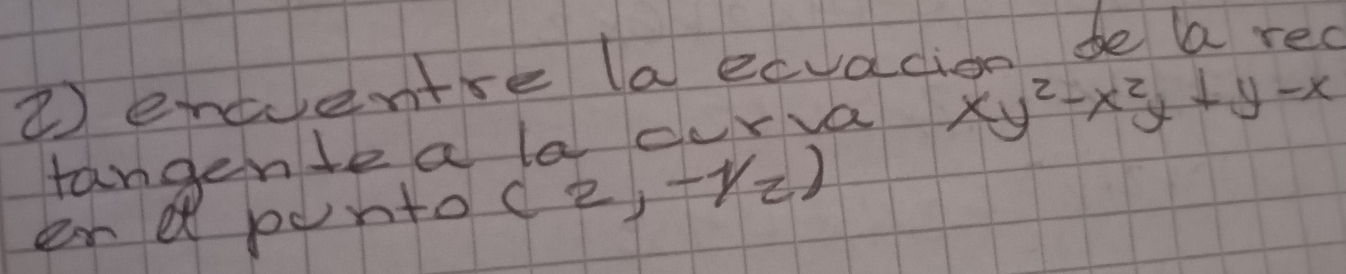 2) encuentre la ecuacion de la rec
tangente a la curva xy²-x²y+y-x
en el punto (2, -1/2)